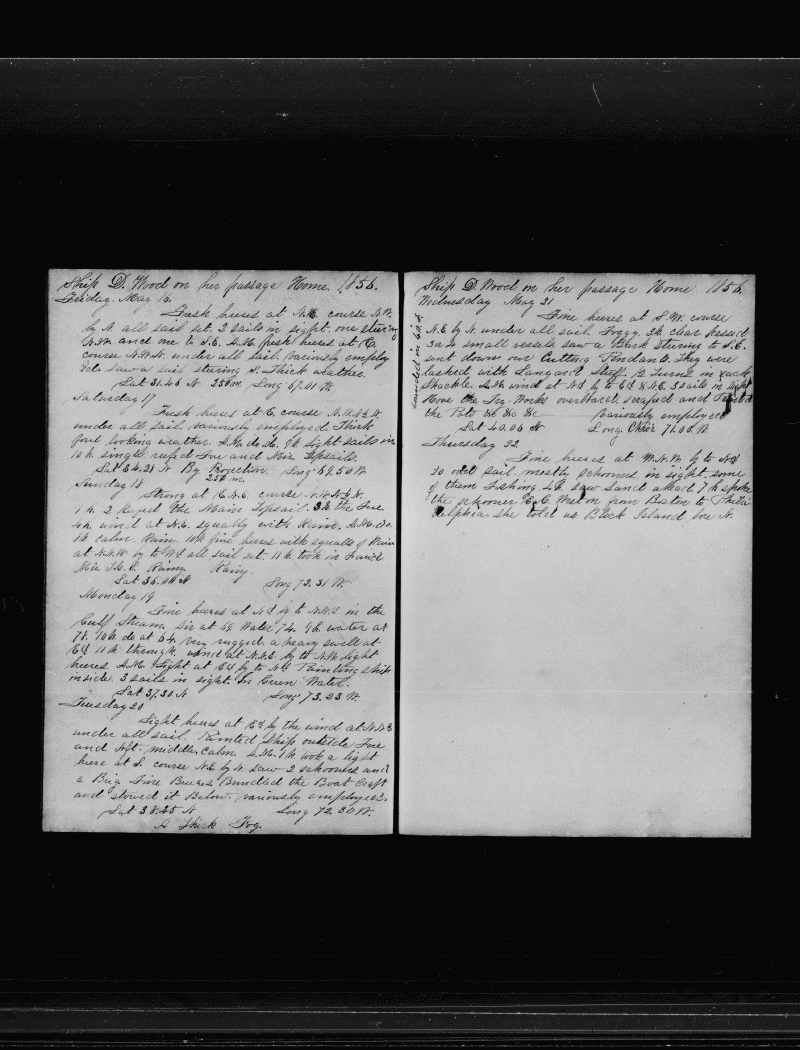 Ship D. Wood on her passage Home. 1856.
Friday. May 16.
Fresh breres at N.E. course N.W.
by N. all sail set. 2 sails in sight. one stering
N.W. and one to S.E. A.M. fresh breres at E.
course N.W.N. under all sail. variously employ
saw a sail stering S. Thick weather.
Lat 31.46 N 250 m. Long 67.01 W.
Saturday 17
Fresh breres at E. course N.W.
under all sail. variously employed. Thick
foul looking weather. A.M. do. do. 9 h. sight sails in
10 h. single reefed Fore and Miz Topsails.
Lat 34.28 N By Projection. Long 69.50 W.
250 m.
Sunday 18
Strong at E.N.E. course N.W.
1 h. 2 Reefed the Main Topsail. 3 h. the Fore
4 h. wind at N.E. squally with Rain. A.M. do
calm. Rain 10 h fine breres with squalls of Rain
at N.N.W by to all sail set. 11 h. took in
Miz T.G.S. Rainy. Rainy.
Lat 36.00 N Long 72.31 W.
Monday 19
Fine breres at to N.N.E. in the
Gulf Stream. Air at Water 74. 9 h. water at
78. 10 h. do at 64. very rugged. a heavy swell at
11 h. through. wind at N.N.E. by to N.W. light
breres. A.M. Light at by to Painting ship
inside. 3 sails in sight. In Green Water.
Lat 37.30 N Long 73.23 W.
Tuesday 20
Light breres at by the wind at N.N.E
under all sail. Painted Ship outside Fore
and Aft. middle calm. A.M. 1 h. took a light
brere at S. course N.E. by N. saw 2 schooners and
a Brig Fine Breres Bundled the Boat Craft
and stowed it Below. variously employed.
Lat 38.25 N Long 72.30 W.
A Thick Fog.
Ship D. Wood on her passage Home 1856.
Wednesday May 21
Fine breres at S.W. course
N.E. by N. under all sail. Foggy. 3 h. clear Passed
3 or 4 small vessels saw a Bark stering to S.E.
sent down our Cutting Pendants. They were
lashed with Langard Stuff. 12 Turns in each
Shackle. A.M. wind at by to & N.E. 3 sails in sight
Hove the Try-Works overboard. scraped and
the Pots &c &c &c variously employed
Lat 40.06 N Long Chro: 71.00 W.
sounded in 60 f.
Thursday 22
Fine breres at W.N.W. by to
30 odd sail. mostly schooners in sight. some
of them Fishing 4 h. saw Land ahead. 7 h spoke
the schooner from Boston to Phila
dalphia. she told us Block Island bore N.